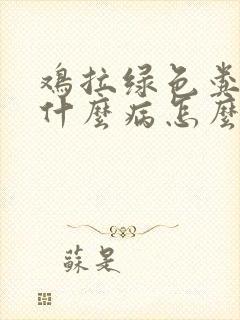 鸡拉绿色粪
什麼病怎麼
蘇是